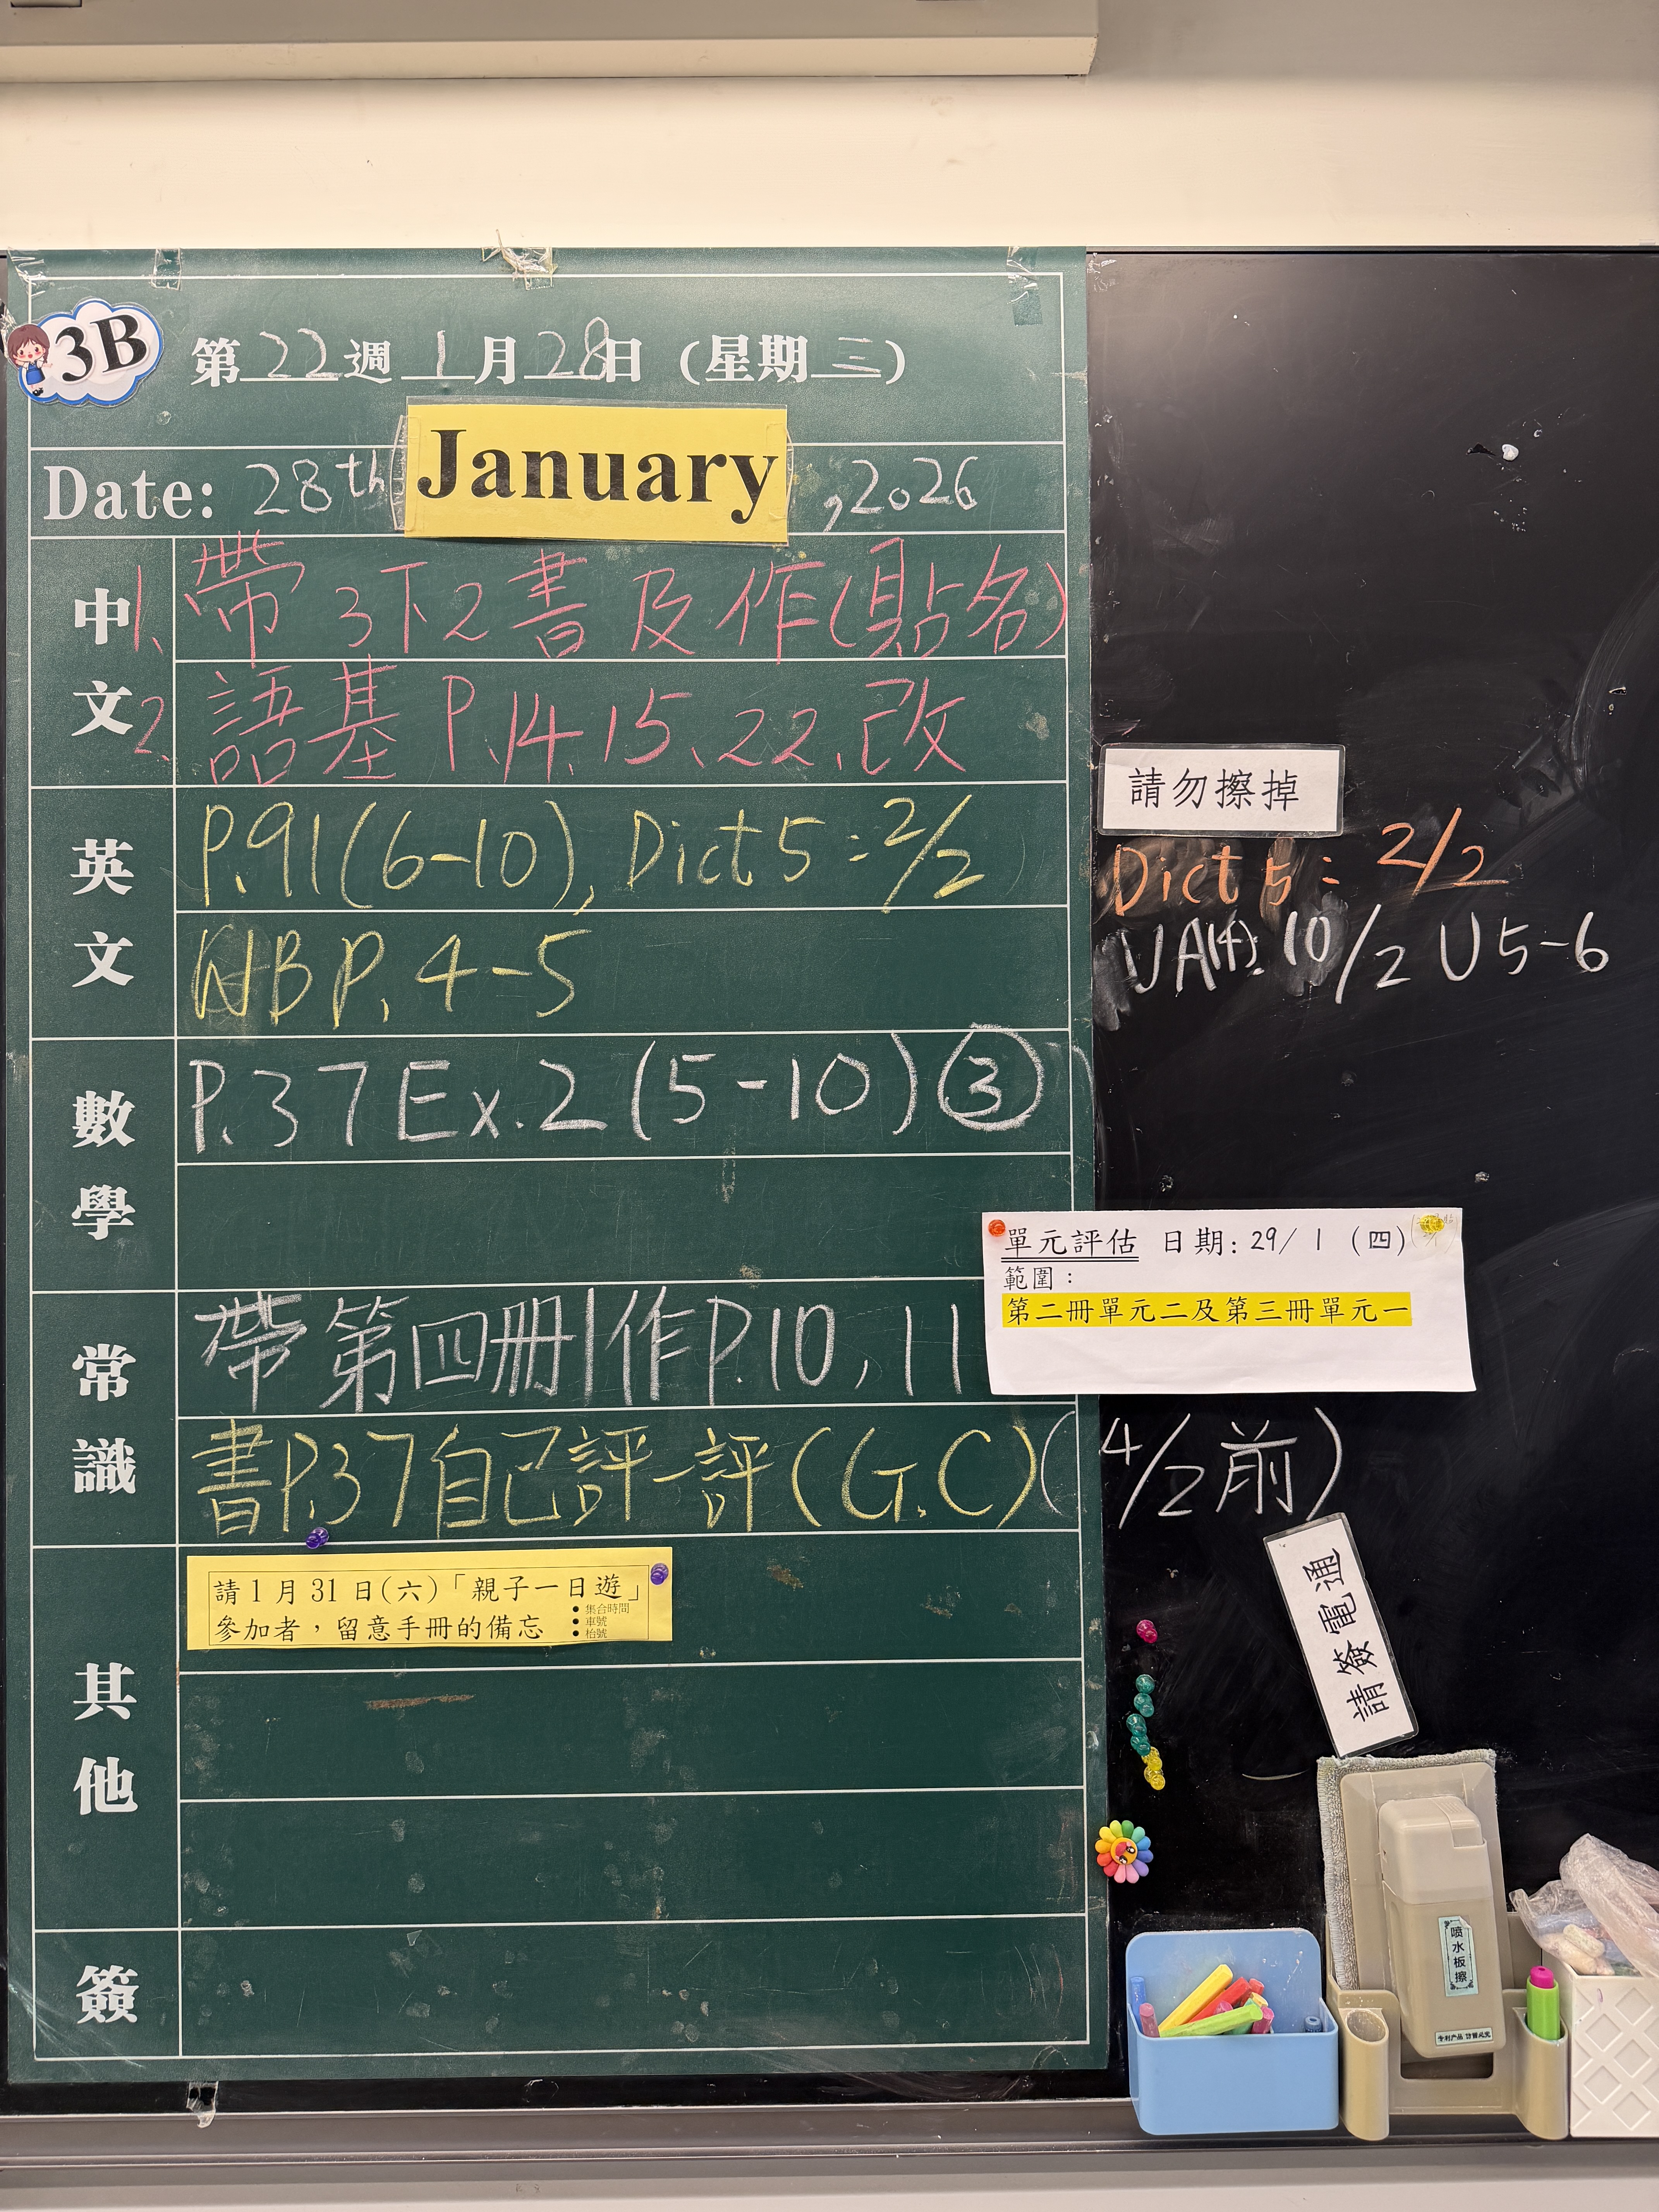 3B
第22週1月28日(星期三)
Date: 28th January ,2026
中文
1. 帶3下2書及作(貼名)
2. 語基P.14、15、22、改
英文
P.91(6-10), Dict 5 : 2/2
WBP. 4-5
數學
P.37 Ex.2 (5-10) ③
常識
帶第四冊|作P.10, 11
書P.37自己評一評(G.C)(4/2前)
其他
請1月31日(六)「親子一日遊」
參加者，留意手冊的備忘
• 集合時間
• 車號
• 枱號
簽
請勿擦掉
Dict 5 : 2/2
UA(4): 10/2 U5-6
單元評估 日期: 29/1 (四)
範圍：
第二冊單元二及第三冊單元一
請簽電通
喷水板擦
专利产品 仿冒必究